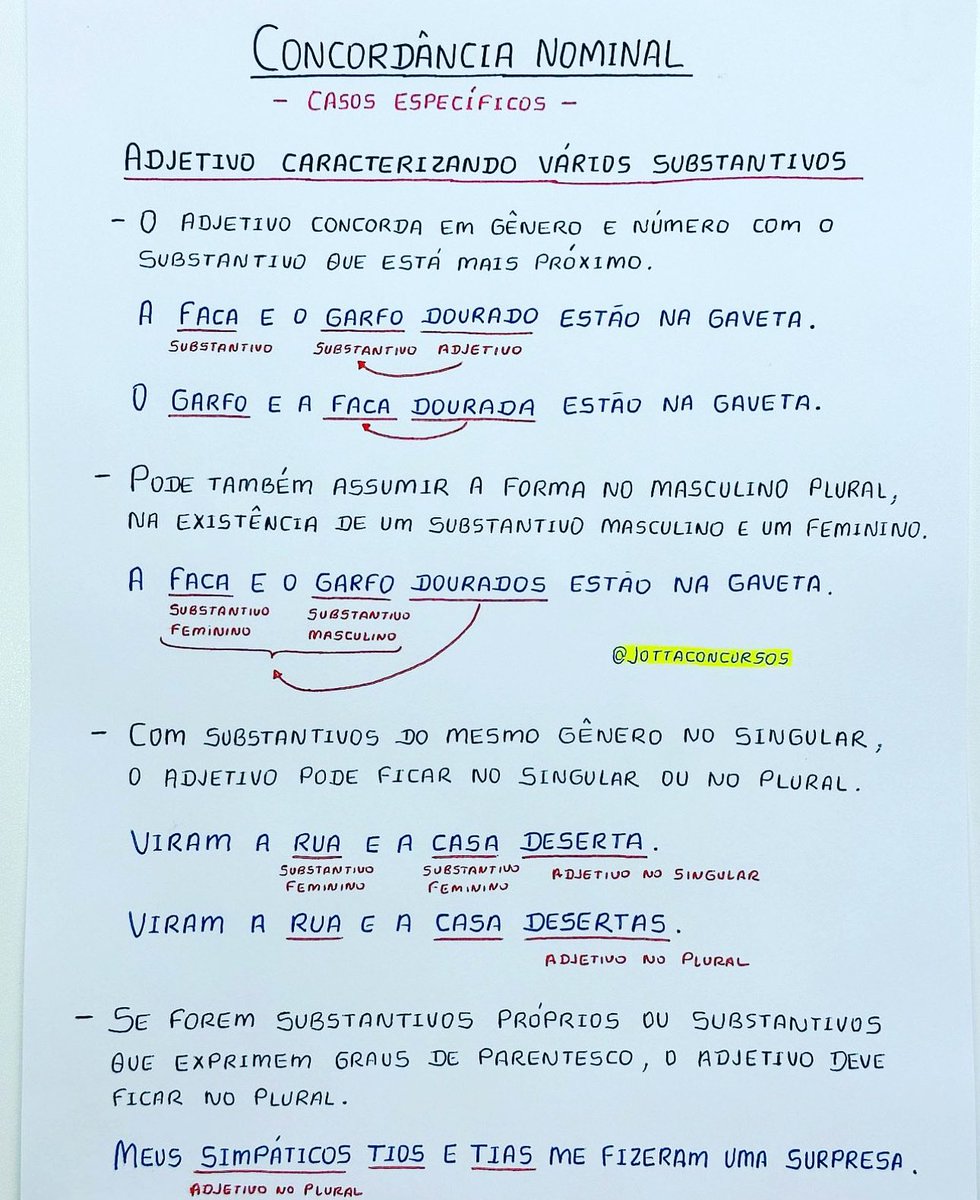 CONCORDÂNCIA NOMINAL
- CASOS ESPECÍFICOS -
ADJETIVO CARACTERIZANDO VÁRIOS SUBSTANTIVOS
- O ADJETIVO CONCORDA EM GÊNERO E NÚMERO COM O
SUBSTANTIVO QUE ESTÁ MAIS PRÓXIMO.
A FACA E O GARFO DOURADO ESTÃO NA GAVETA.
SUBSTANTIVO SUBSTANTIVO ADJETIVO
O GARFO E A FACA DOURADA ESTÃO NA GAVETA.
- PODE TAMBÉM ASSUMIR A FORMA NO MASCULINO PLURAL,
NA EXISTÊNCIA DE UM SUBSTANTIVO MASCULINO E UM FEMININO.
A FACA E O GARFO DOURADOS ESTÃO NA GAVETA.
SUBSTANTIVO SUBSTANTIVO
FEMININO MASCULINO
@JOTTACONCURSOS
- COM SUBSTANTIVOS DO MESMO GÊNERO NO SINGULAR,
O ADJETIVO PODE FICAR NO SINGULAR OU NO PLURAL.
VIRAM A RUA E A CASA DESERTA.
SUBSTANTIVO SUBSTANTIVO ADJETIVO NO SINGULAR
FEMININO FEMININO
VIRAM A RUA E A CASA DESERTAS.
ADJETIVO NO PLURAL
- SE FOREM SUBSTANTIVOS PRÓPRIOS OU SUBSTANTIVOS
QUE EXPRIMEM GRAUS DE PARENTESCO, O ADJETIVO DEVE
FICAR NO PLURAL.
MEUS SIMPÁTICOS TIOS E TIAS ME FIZERAM UMA SURPRESA.
ADJETIVO NO PLURAL